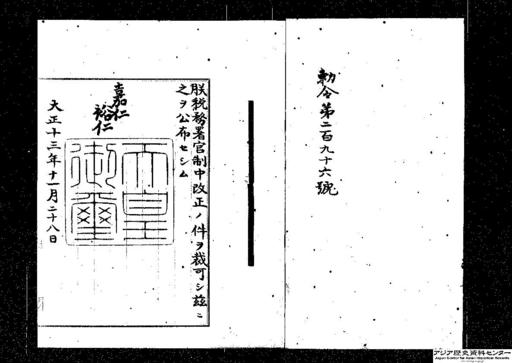 勅令第二百九十六號
朕税務署官制中改正ノ件ヲ裁可シ茲ニ
之ヲ公布セシム
嘉仁
裕仁
天皇
御璽
大正十三年十一月二十八日
アジア歴史資料センター
Japan Center for Asian Historical Records